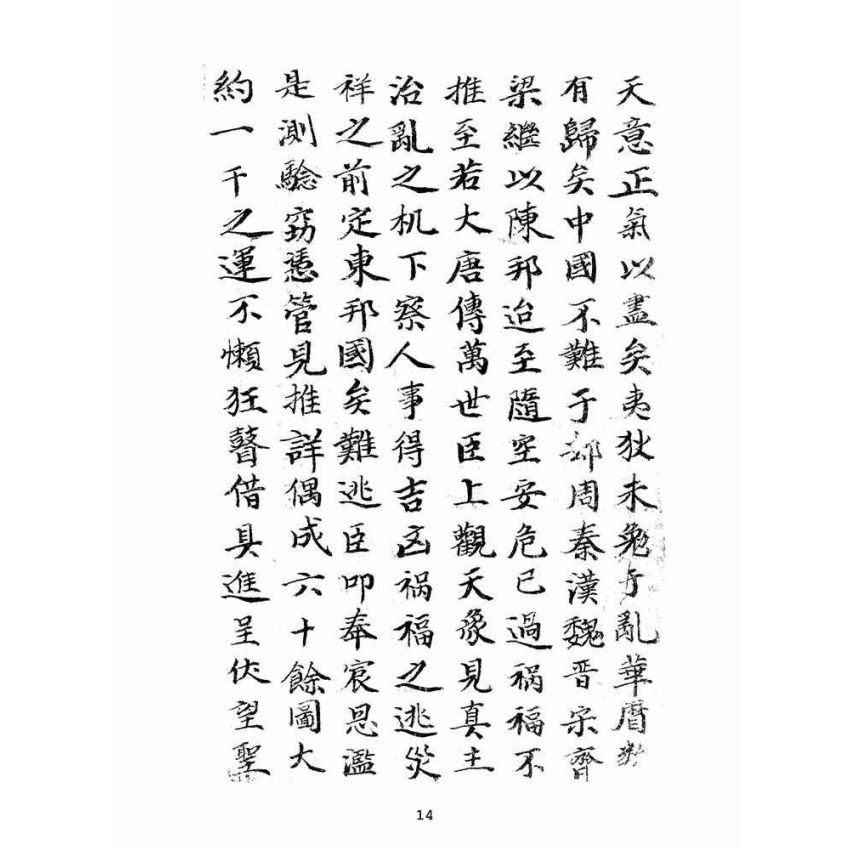 天意正氣以盡矣夷狄未免于亂華曆數
有歸矣中國不難于卻周秦漢魏晉宋齊
梁繼以陳邦迨至隨室安危已過祸福不
推至若大唐傳萬世臣上觀天象見真主
治亂之机下察人事得吉凶祸福之逃災
祥之前定東邦國矣難逃臣叩奉宸恩濫
是測驗窃慿管見推詳偶成六十餘圖大
約一千之運不懶狂瞽借具進呈伏望聖
14